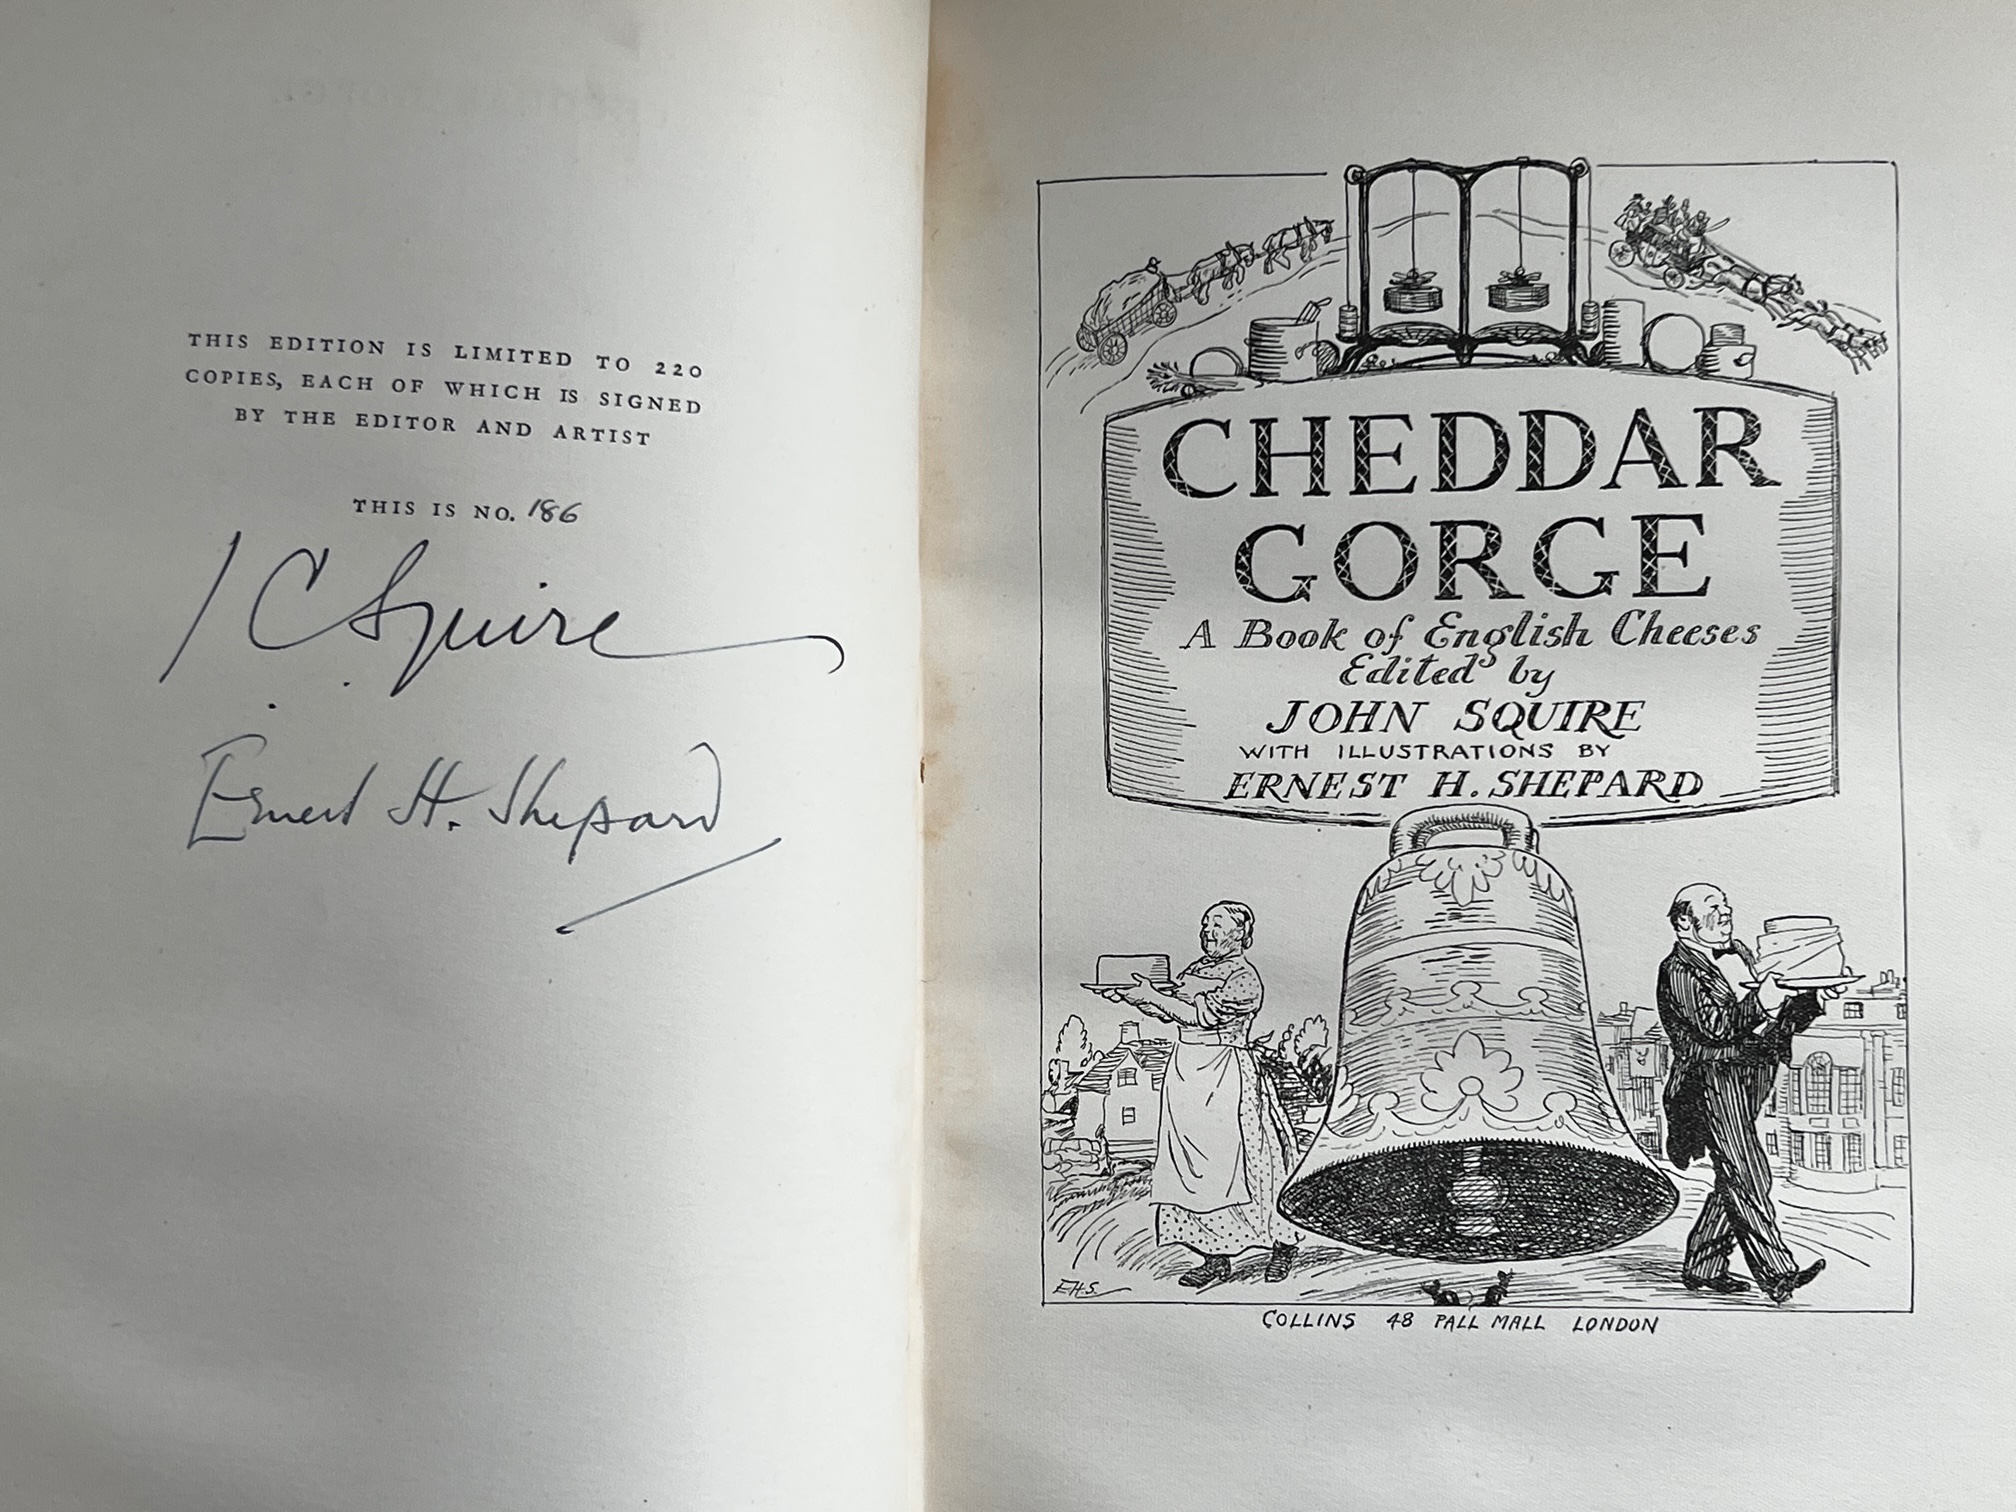 THIS EDITION IS LIMITED TO 220
COPIES, EACH OF WHICH IS SIGNED
BY THE EDITOR AND ARTIST
THIS IS NO. 186
J C Squire
Ernest H. Shepard
CHEDDAR
GORGE
A Book of English Cheeses
Edited by
JOHN SQUIRE
WITH ILLUSTRATIONS BY
ERNEST H. SHEPARD
E.H.S.
COLLINS 48 PALL MALL LONDON